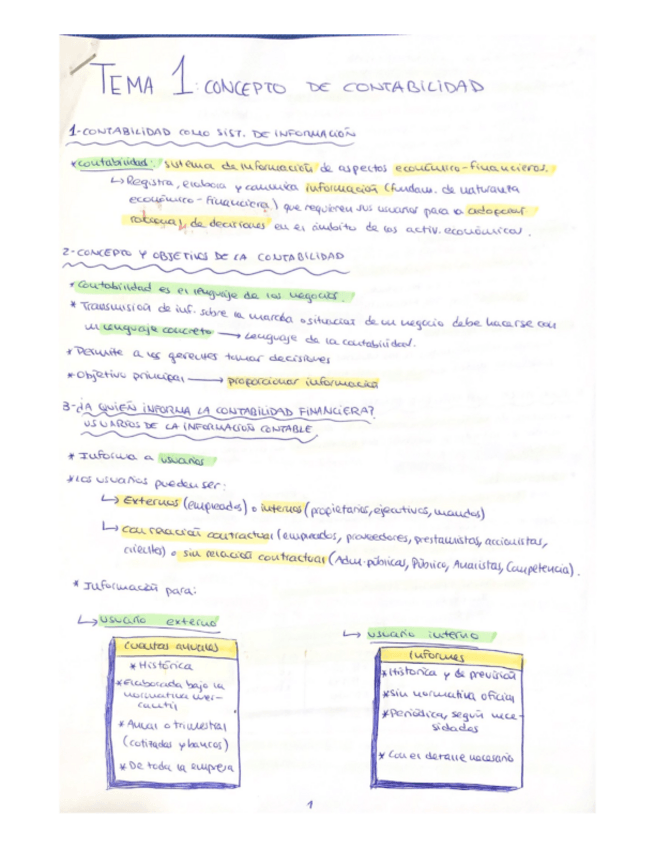 TEMA 1: CONCEPTO DE CONTABILIDAD
1-CONTABILIDAD COMO SIST. DE INFORMACIÓN
*contabilidad: sistema de información de aspectos económico-financieros.
↳ Registra, elabora y comunica información (fundam. de naturaleza
económico-financiera) que requieren sus usuarios para la adopción
racional de decisiones en el ámbito de las activ. económicas.
2-CONCEPTO Y OBJETIVOS DE LA CONTABILIDAD
* Contabilidad es el lenguaje de los negocios.
* Transmisión de inf. sobre la marcha o situación de un negocio debe hacerse con
un lenguaje concreto → Lenguaje de la contabilidad.
* Permite a los gerentes tomar decisiones
* Objetivo principal → proporcionar información
3-¿A QUIÉN INFORMA LA CONTABILIDAD FINANCIERA?
USUARIOS DE LA INFORMACIÓN CONTABLE
* Informa a usuarios
*Los usuarios pueden ser:
↳ Externos (empleados) o internos (propietarios, ejecutivos, mandos)
↳ con relación contractual (empleados, proveedores, prestamistas, accionistas,
clientes) o sin relación contractual (Adm. públicas, Público, Analistas, Competencia).
* Información para:
↳ usuario externo
Cuentas anuales
* Histórica
*Elaborada bajo la
normativa mer-
cantil
* Anual o trimestral
(cotizadas y bancos)
* De toda la empresa
↳ usuario interno
Informes
*Histórica y de previsión
*Sin normativa oficial
*Periódica, según nece-
sidades
* Con el detalle necesario
1